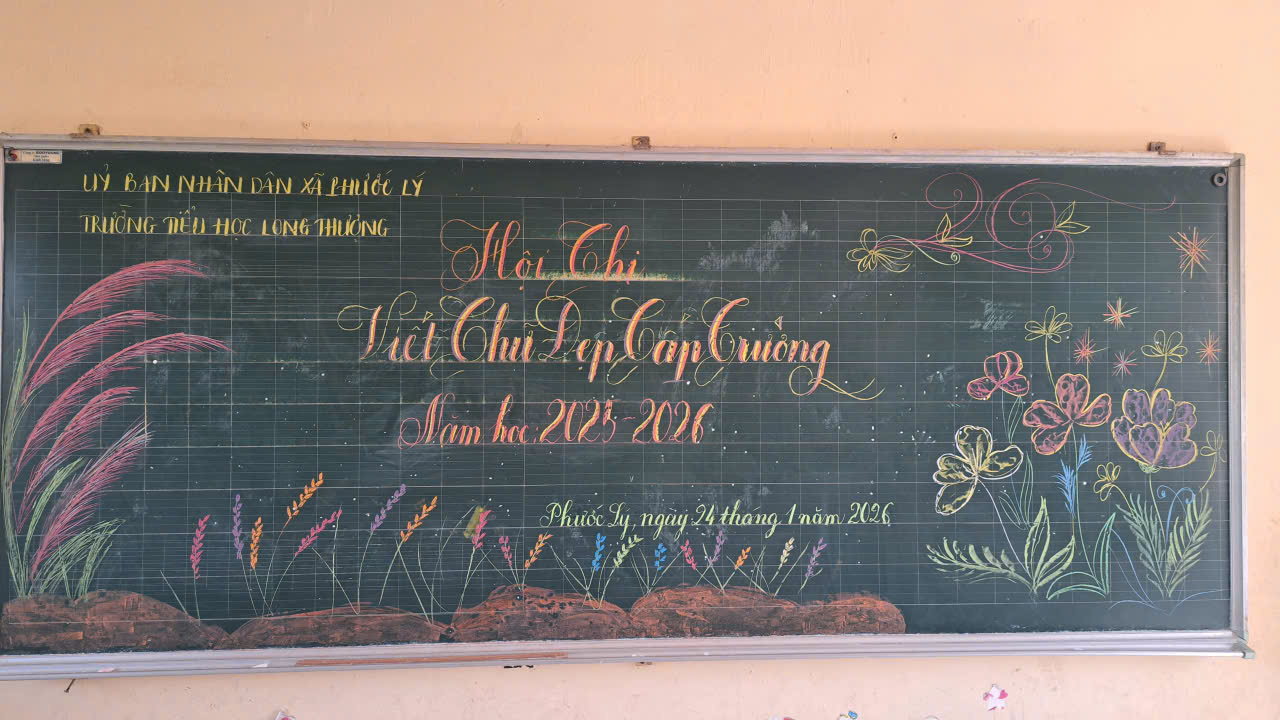 UỶ BAN NHÂN DÂN XÃ PHƯỚC LÝ
TRƯỜNG TIỂU HỌC LONG THƯỢNG
Hội Thi
Viết Chữ Đẹp Cấp Trường
Năm học: 2025-2026
Phước Lý, ngày 24 tháng 1 năm 2026